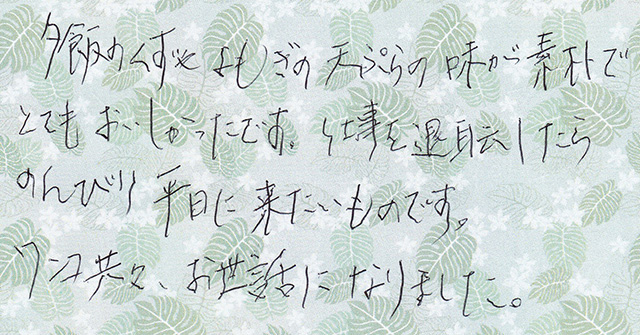 夕飯のくずやよもぎの天ぷらの味が素朴で
とてもおいしかったです。仕事を退職したら
のんびり平日に来たいものです。
ワンコ共々、お世話になりました。